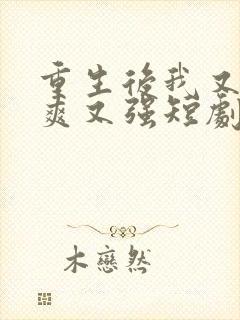 重生後我又
爽又強短劇
木戀然